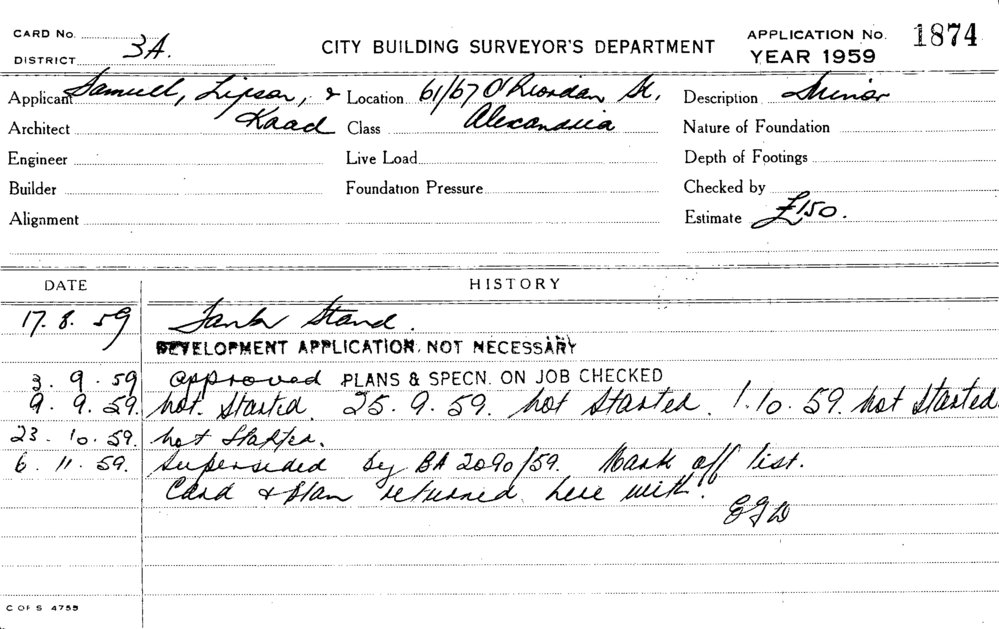 CARD No.
DISTRICT 3A.
CITY BUILDING SURVEYOR'S DEPARTMENT
APPLICATION No. 1874
YEAR 1959
Applicant Samuell, Lipson, &
Kaad
Location 61/67 O'Riordan St,
Alexandria
Description Minor
Architect
Class
Nature of Foundation
Engineer
Live Load
Depth of Footings
Builder
Foundation Pressure
Checked by
Alignment
Estimate £150.
DATE HISTORY
17. 8. 59 Tank Stand.
DEVELOPMENT APPLICATION NOT NECESSARY
3. 9. 59 approved PLANS & SPECN. ON JOB CHECKED
9. 9. 59. not started. 25. 9. 59. not started. 1. 10. 59. not started
23. 10. 59. not started.
6. 11. 59. Superseded by BA 2090/59. Mark off list.
Card & Plan returned here with.
EGD
C OF S 4755